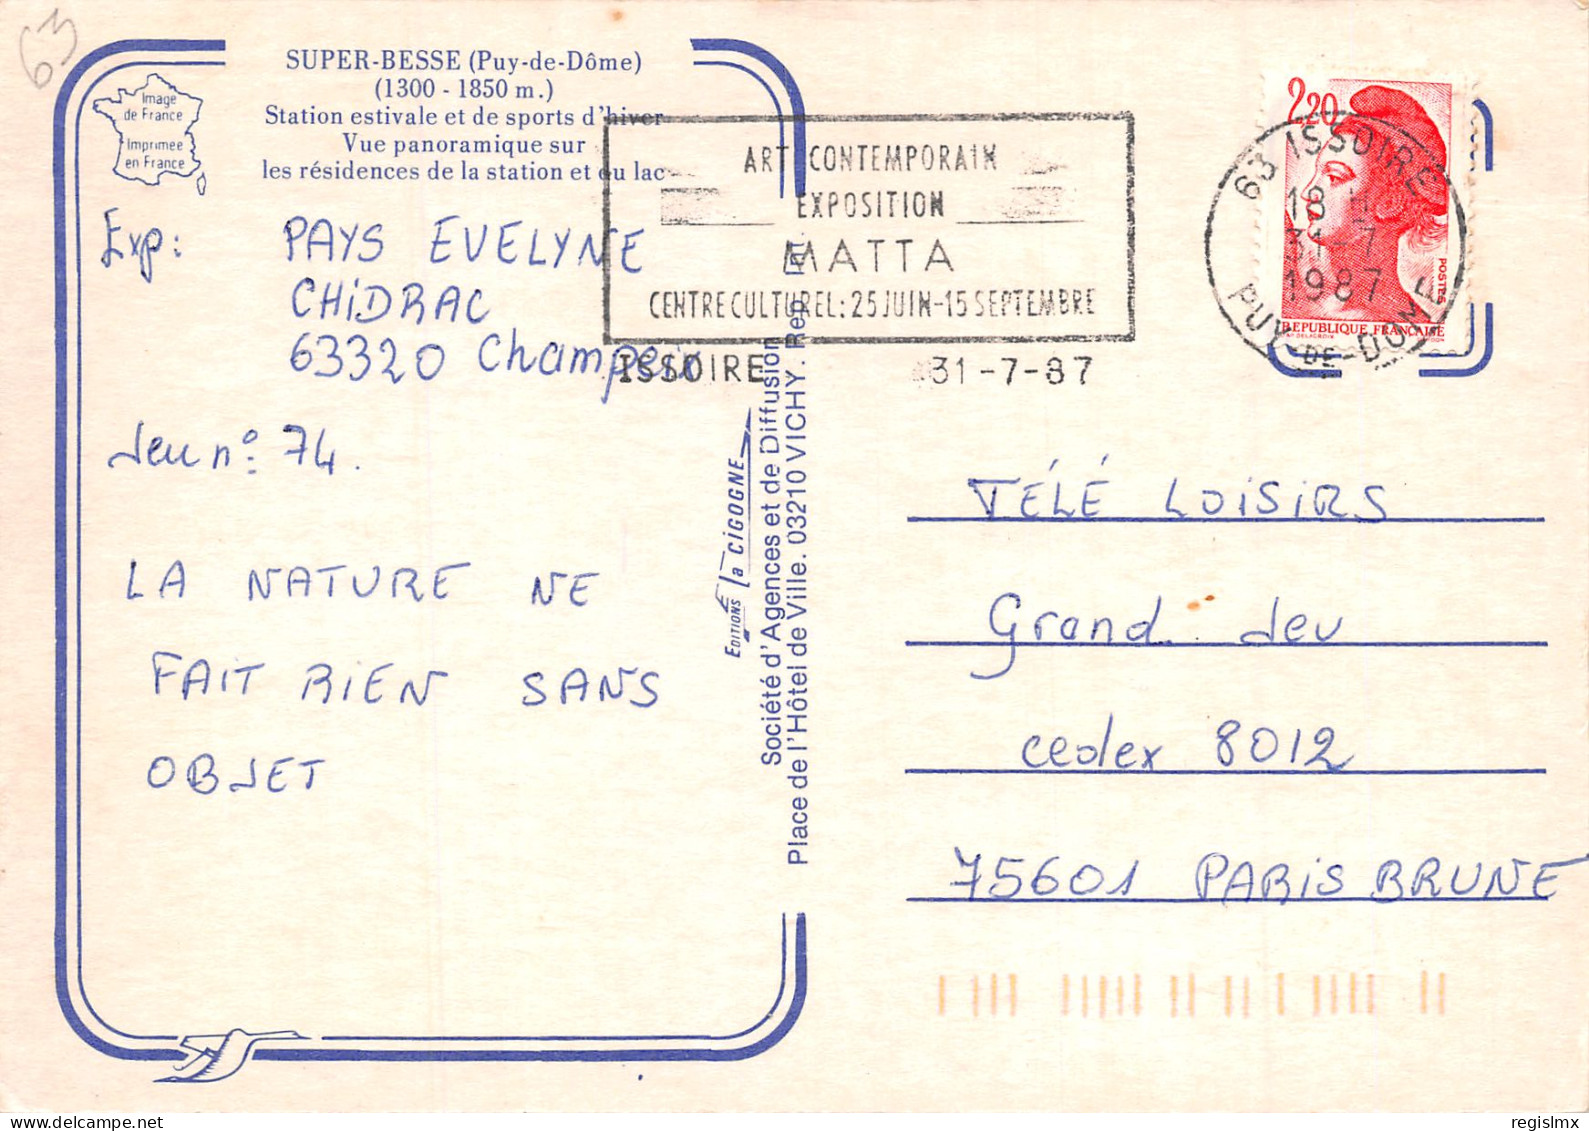 63
SUPER-BESSE (Puy-de-Dôme)
(1300 - 1850 m.)
Station estivale et de sports d'hiver
Vue panoramique sur
les résidences de la station et du lac
Image
de France
Imprimée
en France
Exp: PAYS EVELYNE
CHiDRAC
63320 Champeix
Jeu n°: 74.
LA NATURE NE
FAIT RIEN SANS
OBJET
EDITIONS la CIGOGNE
Société d'Agences et de Diffusion
Place de l'Hôtel de Ville. 03210 VICHY. Rep.
ART CONTEMPORAIN
EXPOSITION
MATTA
CENTRE CULTUREL: 25 JUIN-15 SEPTEMBRE
ISSOIRE 31-7-87
2,20
POSTES
REPUBLIQUE FRANÇAISE
63 ISSOIRE
18
31-7
1987
PUY-DE-DOME
TÉLÉ LOiSiRS
Grand Jeu
cedex 8012
75601 PARiS BRUNE
regislmx